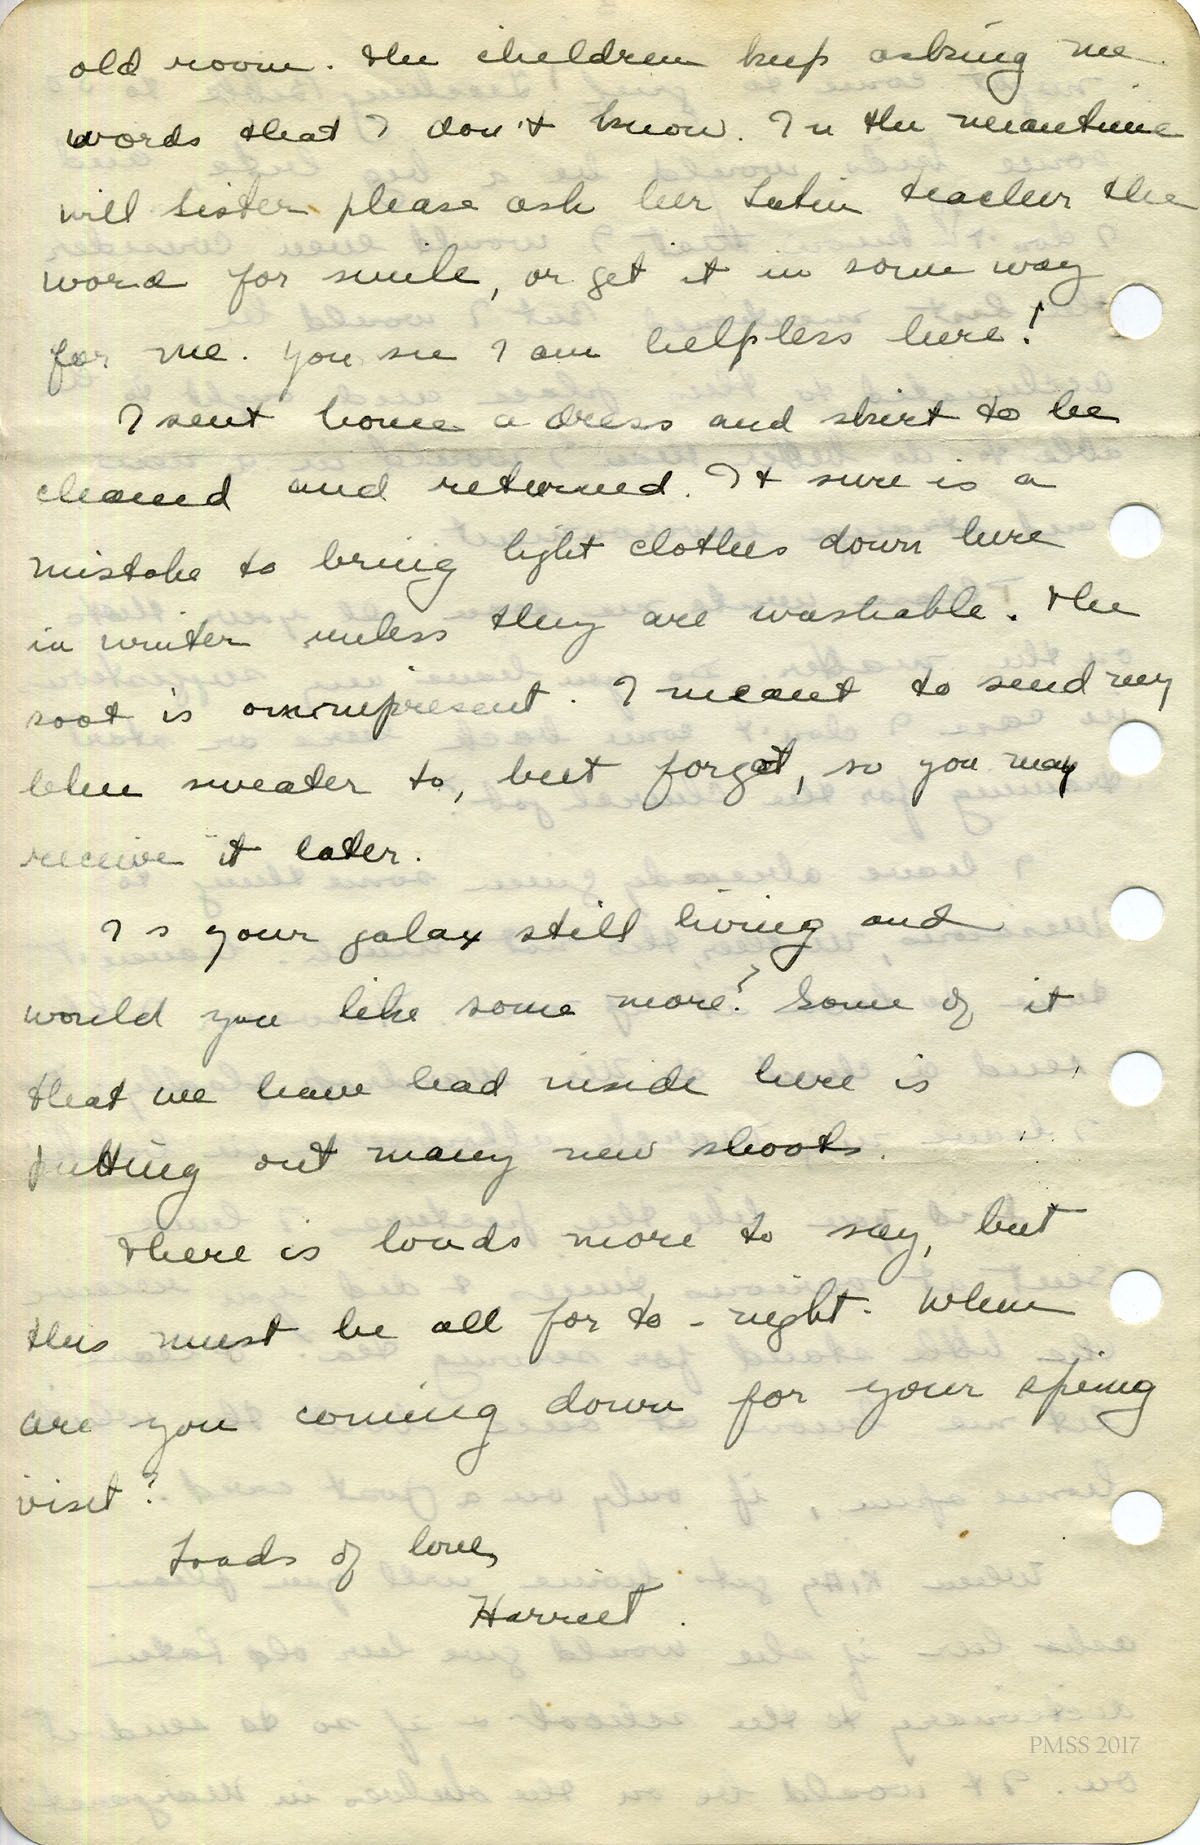 old room. The children keep asking me
words that I don't know. In the meantime
will sister please ask her Latin teacher the
word for smile, or get it in some way
for me. You see I am helpless here!
I sent home a dress and skirt to be
cleaned and returned. It sure is a
mistake to bring light clothes down here
in winter unless they are washable. The
soot is omnipresent. I meant to send my
blue sweater to, but forgot, so you may
receive it later.
Is your galax still living and
would you like some more? Some of it
that we have had inside here is
putting out many new shoots.
There is loads more to say, but
this must be all for to-night. When
are you coming down for your spring
visit?
Loads of love,
Harriet.
PMSS 2017